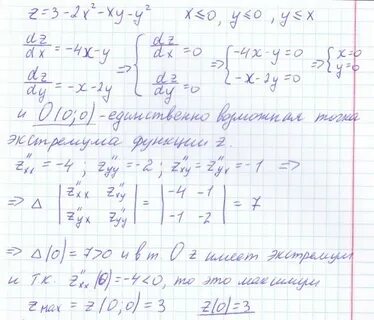 z=3-2x²-xy-y²   x≤0, y≤0, y≤x
{dz/dx=-4x-y  {dz/dx=0  {-4x-y=0  {x=0
{dz/dy=-x-2y ⇒ {dz/dy=0 ⇒ {-x-2y=0 ⇒ {y=0
и O(0;0)-единственно возможная точка
экстремума функции z.
z''xx=-4; z''yy=-2; z''xy=z''yx=-1 ⇒
⇒ Δ |z''xx z''xy| = |-4 -1| = 7
|z''yx z''yy| |-1 -2|
⇒ Δ(0)=7>0 и в т. O z имеет экстремум
и т.к. z''xx(0)=-4<0, то это максимум
zmax=z(0;0)=3   z(0)=3